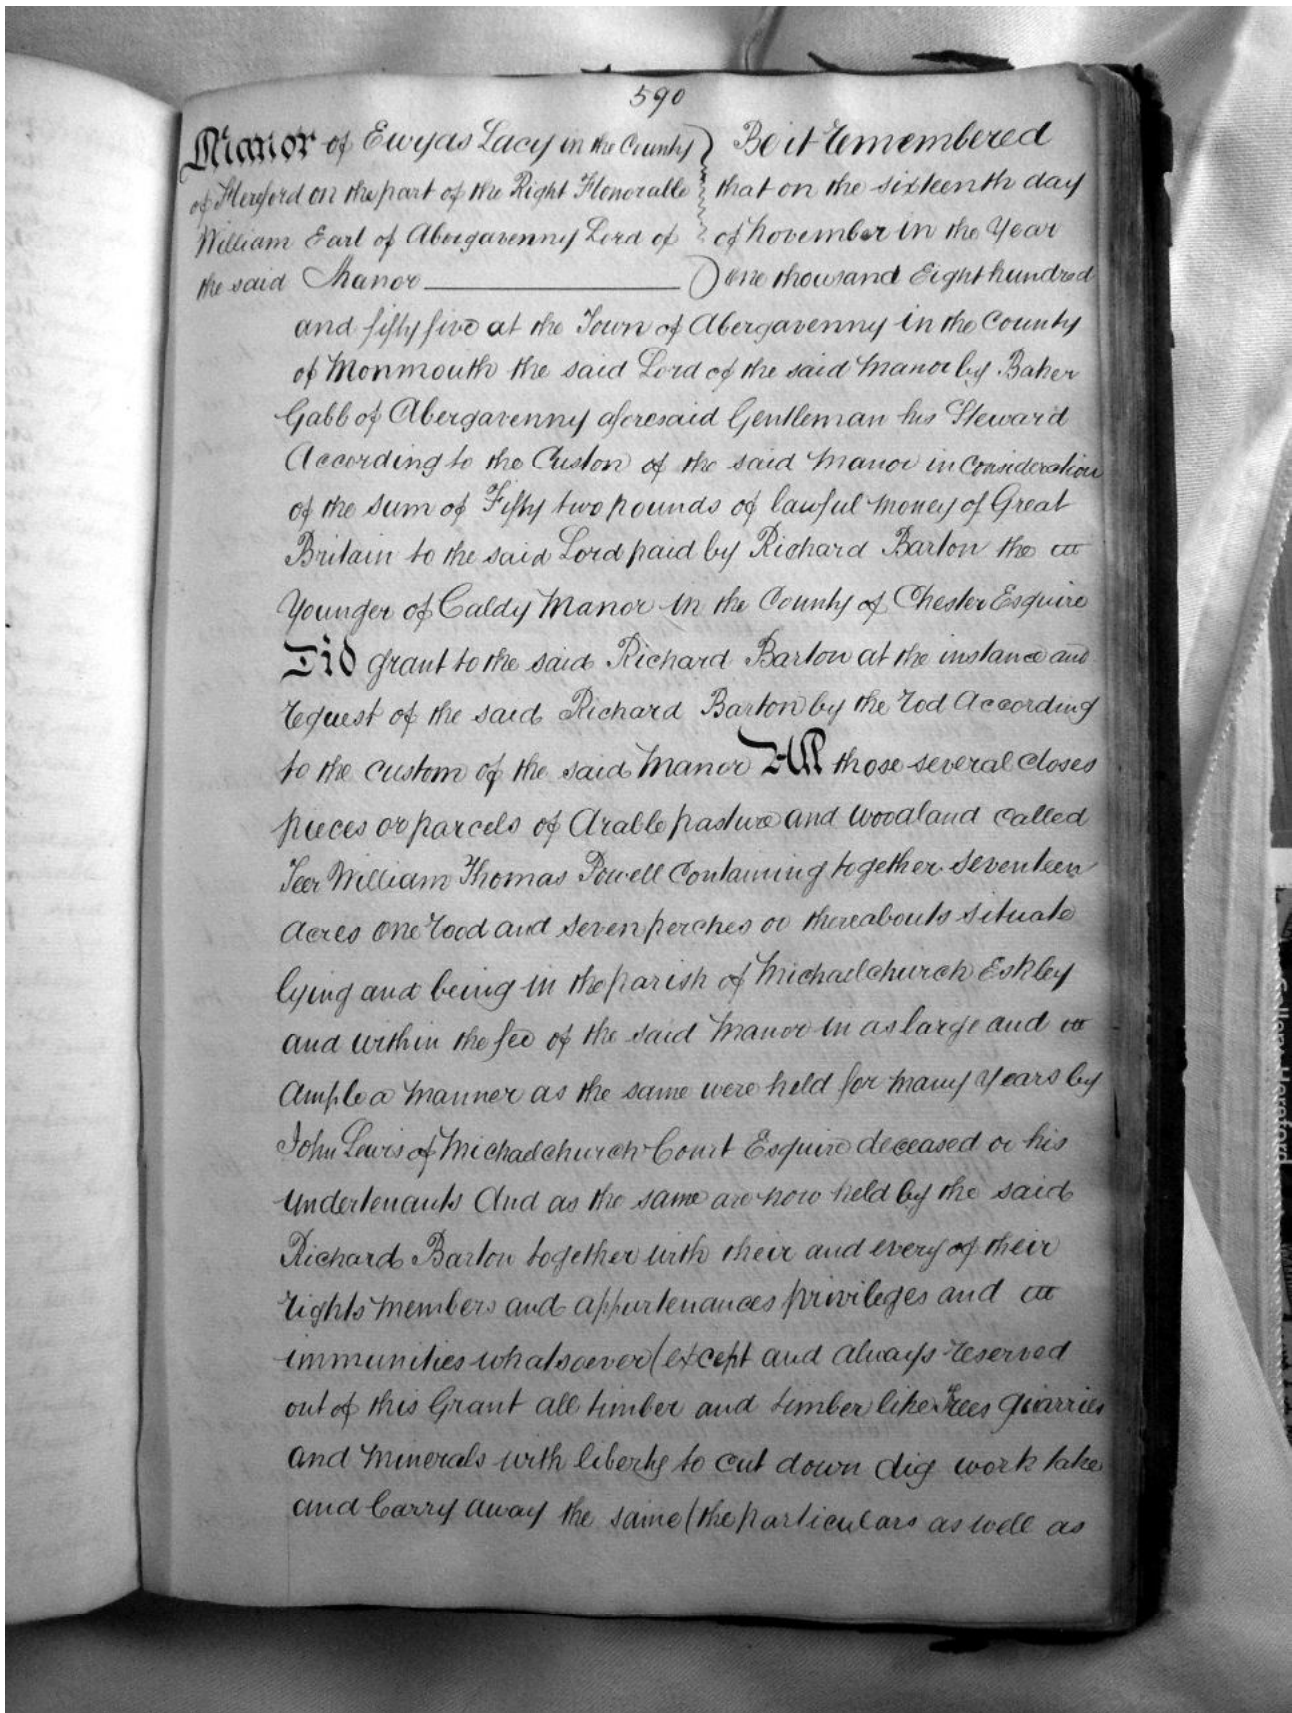 590
Manor of Ewyas Lacy in the County
of Hereford on the part of the Right Honorable
William Earl of Abergavenny Lord of
the said Manor
Be it remembered
that on the sixteenth day
of November in the Year
One thousand Eight hundred
and fifty five at the Town of Abergavenny in the County
of Monmouth the said Lord of the said Manor by Baker
Gabb of Abergavenny aforesaid Gentleman his Steward
According to the Custom of the said Manor in Consideration
of the sum of Fifty two pounds of lawful money of Great
Britain to the said Lord paid by Richard Barton the
Younger of Caldy Manor in the County of Chester Esquire
Did grant to the said Richard Barton at the instance and
request of the said Richard Barton by the rod According
to the custom of the said Manor All those several closes
pieces or parcels of Arable pasture and woodland called
Teer William Thomas Powell Containing together seventeen
acres one rood and seven perches or thereabouts situate
lying and being in the parish of Michaelchurch Eskley
and within the fee of the said Manor in as large and
Ample a manner as the same were held for many Years by
John Lewis of Michaelchurch Court Esquire deceased or his
Undertenants And as the same are now held by the said
Richard Barton together with their and every of their
rights members and appurtenances privileges and
immunities whatsoever (except and always reserved
out of this Grant all timber and timber like Trees quarries
and minerals with liberty to cut down dig work take
and Carry away the same (the particulars as well as